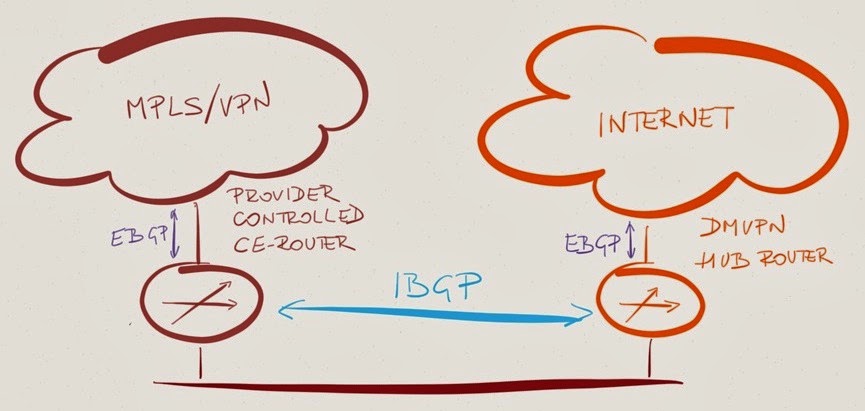 MPLS/VPN
INTERNET
PROVIDER
CONTROLLED
CE-ROUTER
EBGP
EBGP
DMVPN
HUB ROUTER
IBGP